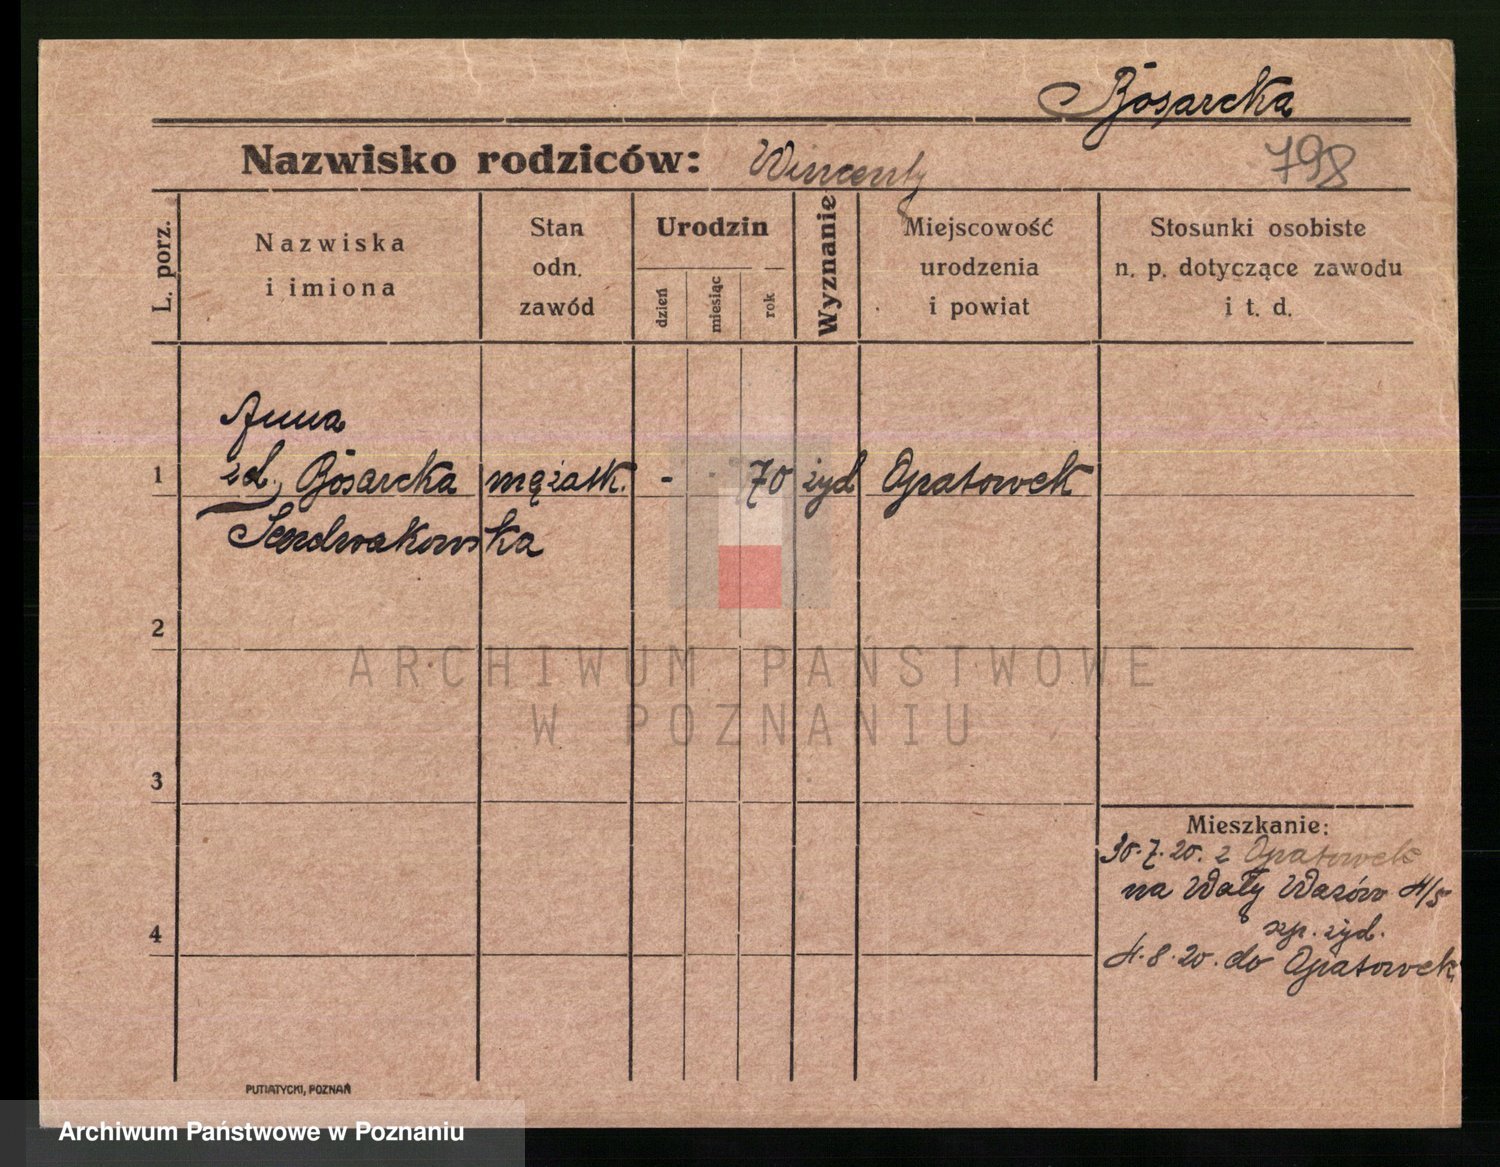 Bósarcka
Nazwisko rodziców: Wincenty 798
L. porz.
Nazwiska
i imiona
Stan
odn.
zawód
Urodzin
dzień
miesiąc
rok
Wyznanie
Miejscowość
urodzenia
i powiat
Stosunki osobiste
n. p. dotyczące zawodu
i t. d.
Anna
1 zd. Bósarcka mężatk. - - 70 żyd Opatowek
2
ARCHIWUM PAŃSTWOWE
W POZNANIU
3
Mieszkanie:
30.7.20. z Opatowek
na Wały Wazów 4/5
szp. żyd.
4
4.8.20. do Opatowek
PUTIATYCKI, POZNAŃ
Archiwum Państwowe w Poznaniu